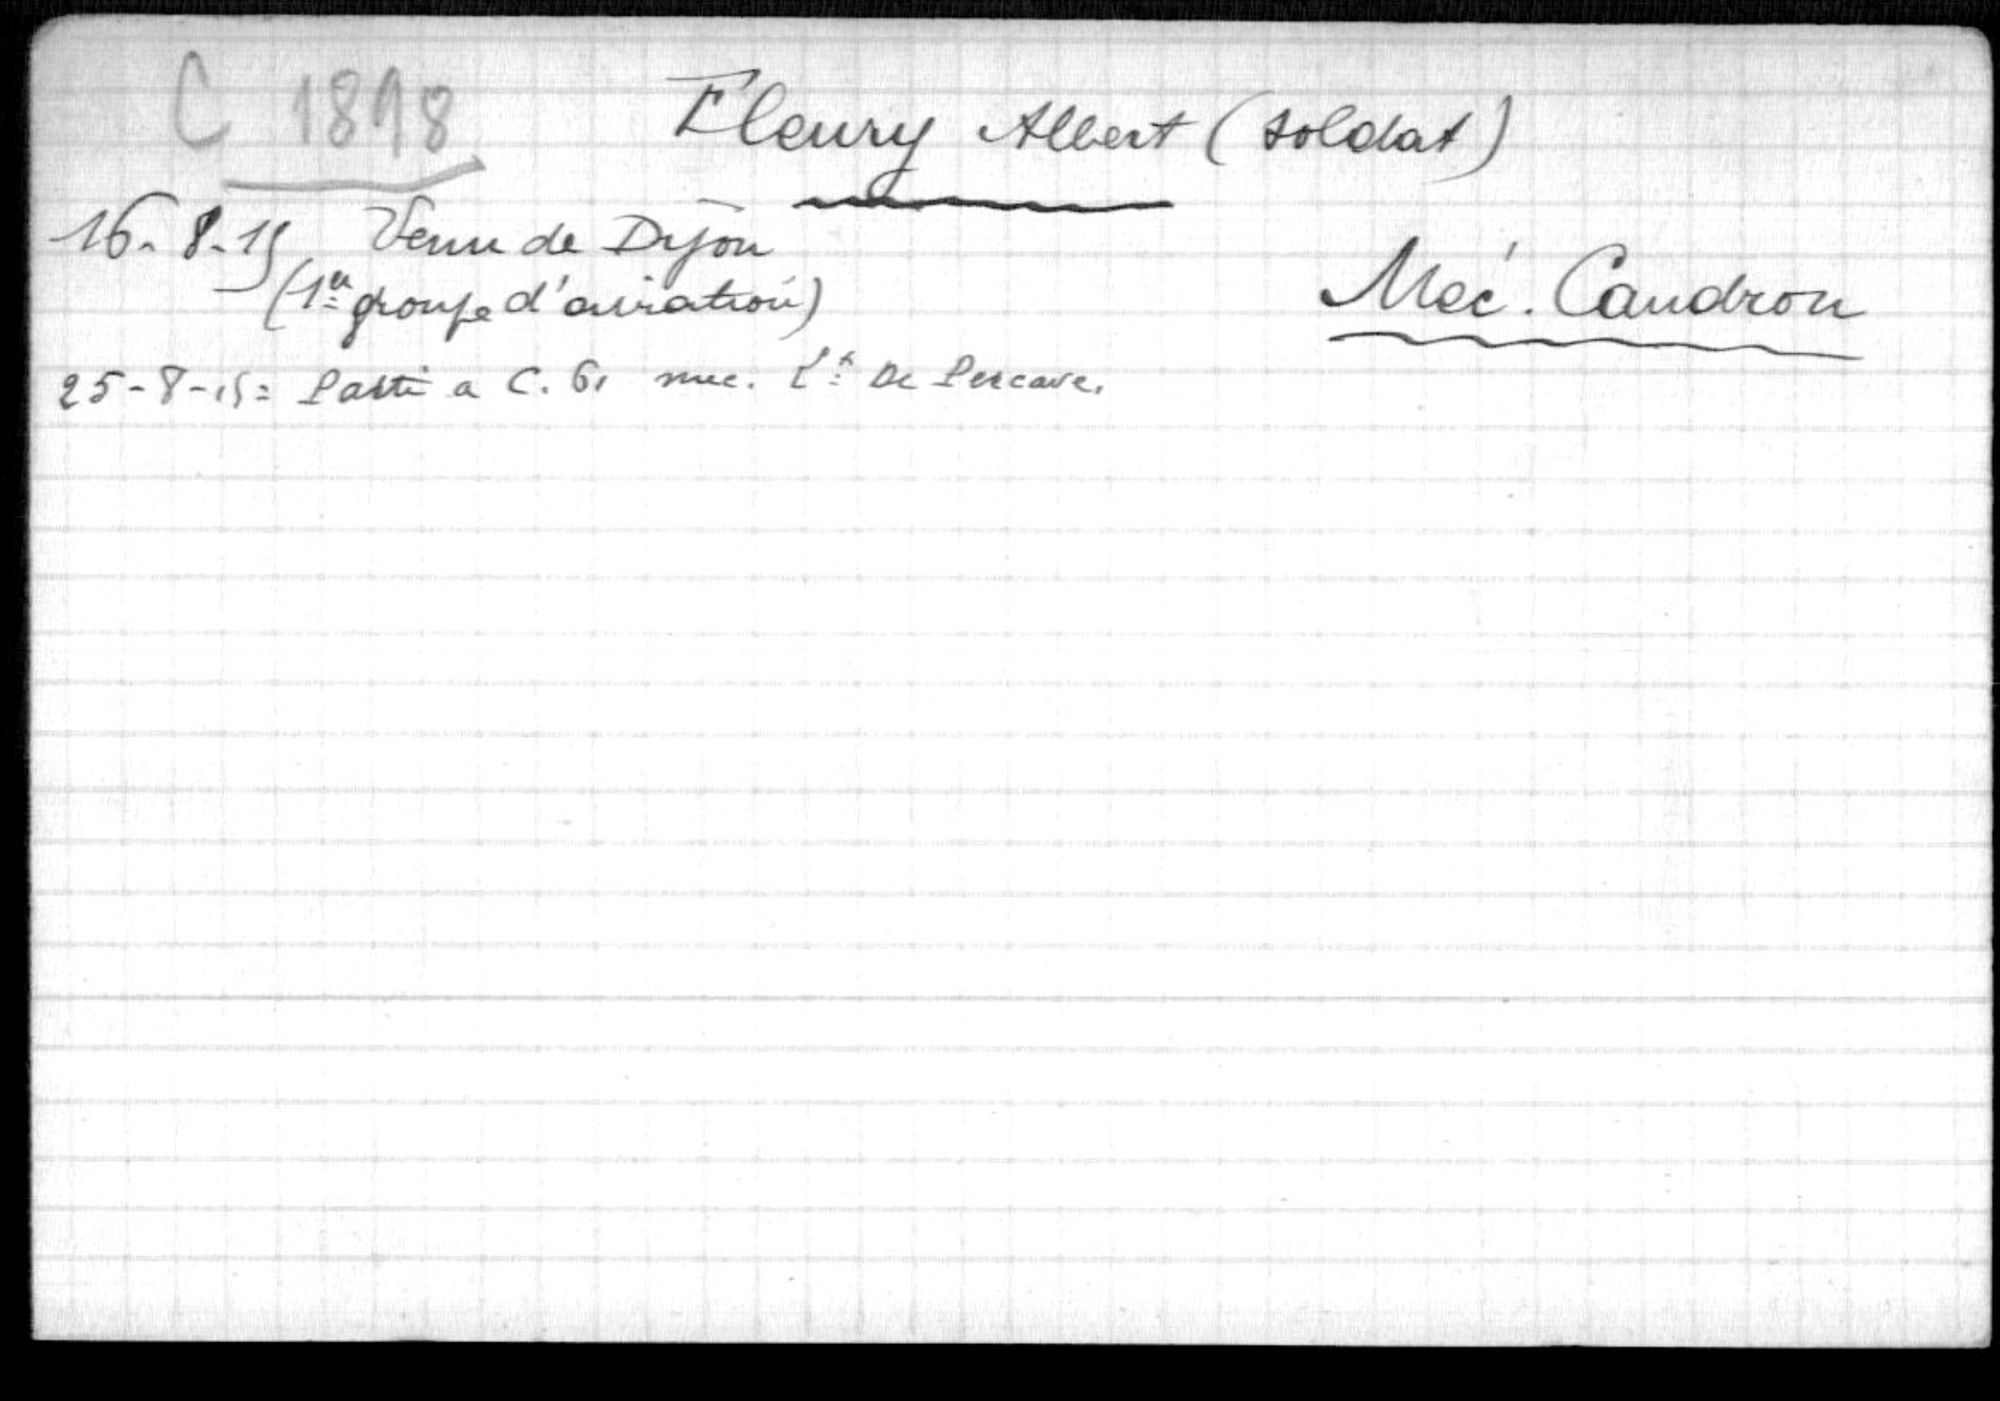 C 1898 Fleury Albert (soldat)
16-8-15 Venu de Dijon
(1er groupe d'aviation) Méc. Caudron
25-8-15 = Parti a C. 61 mec. Lt De Percave.